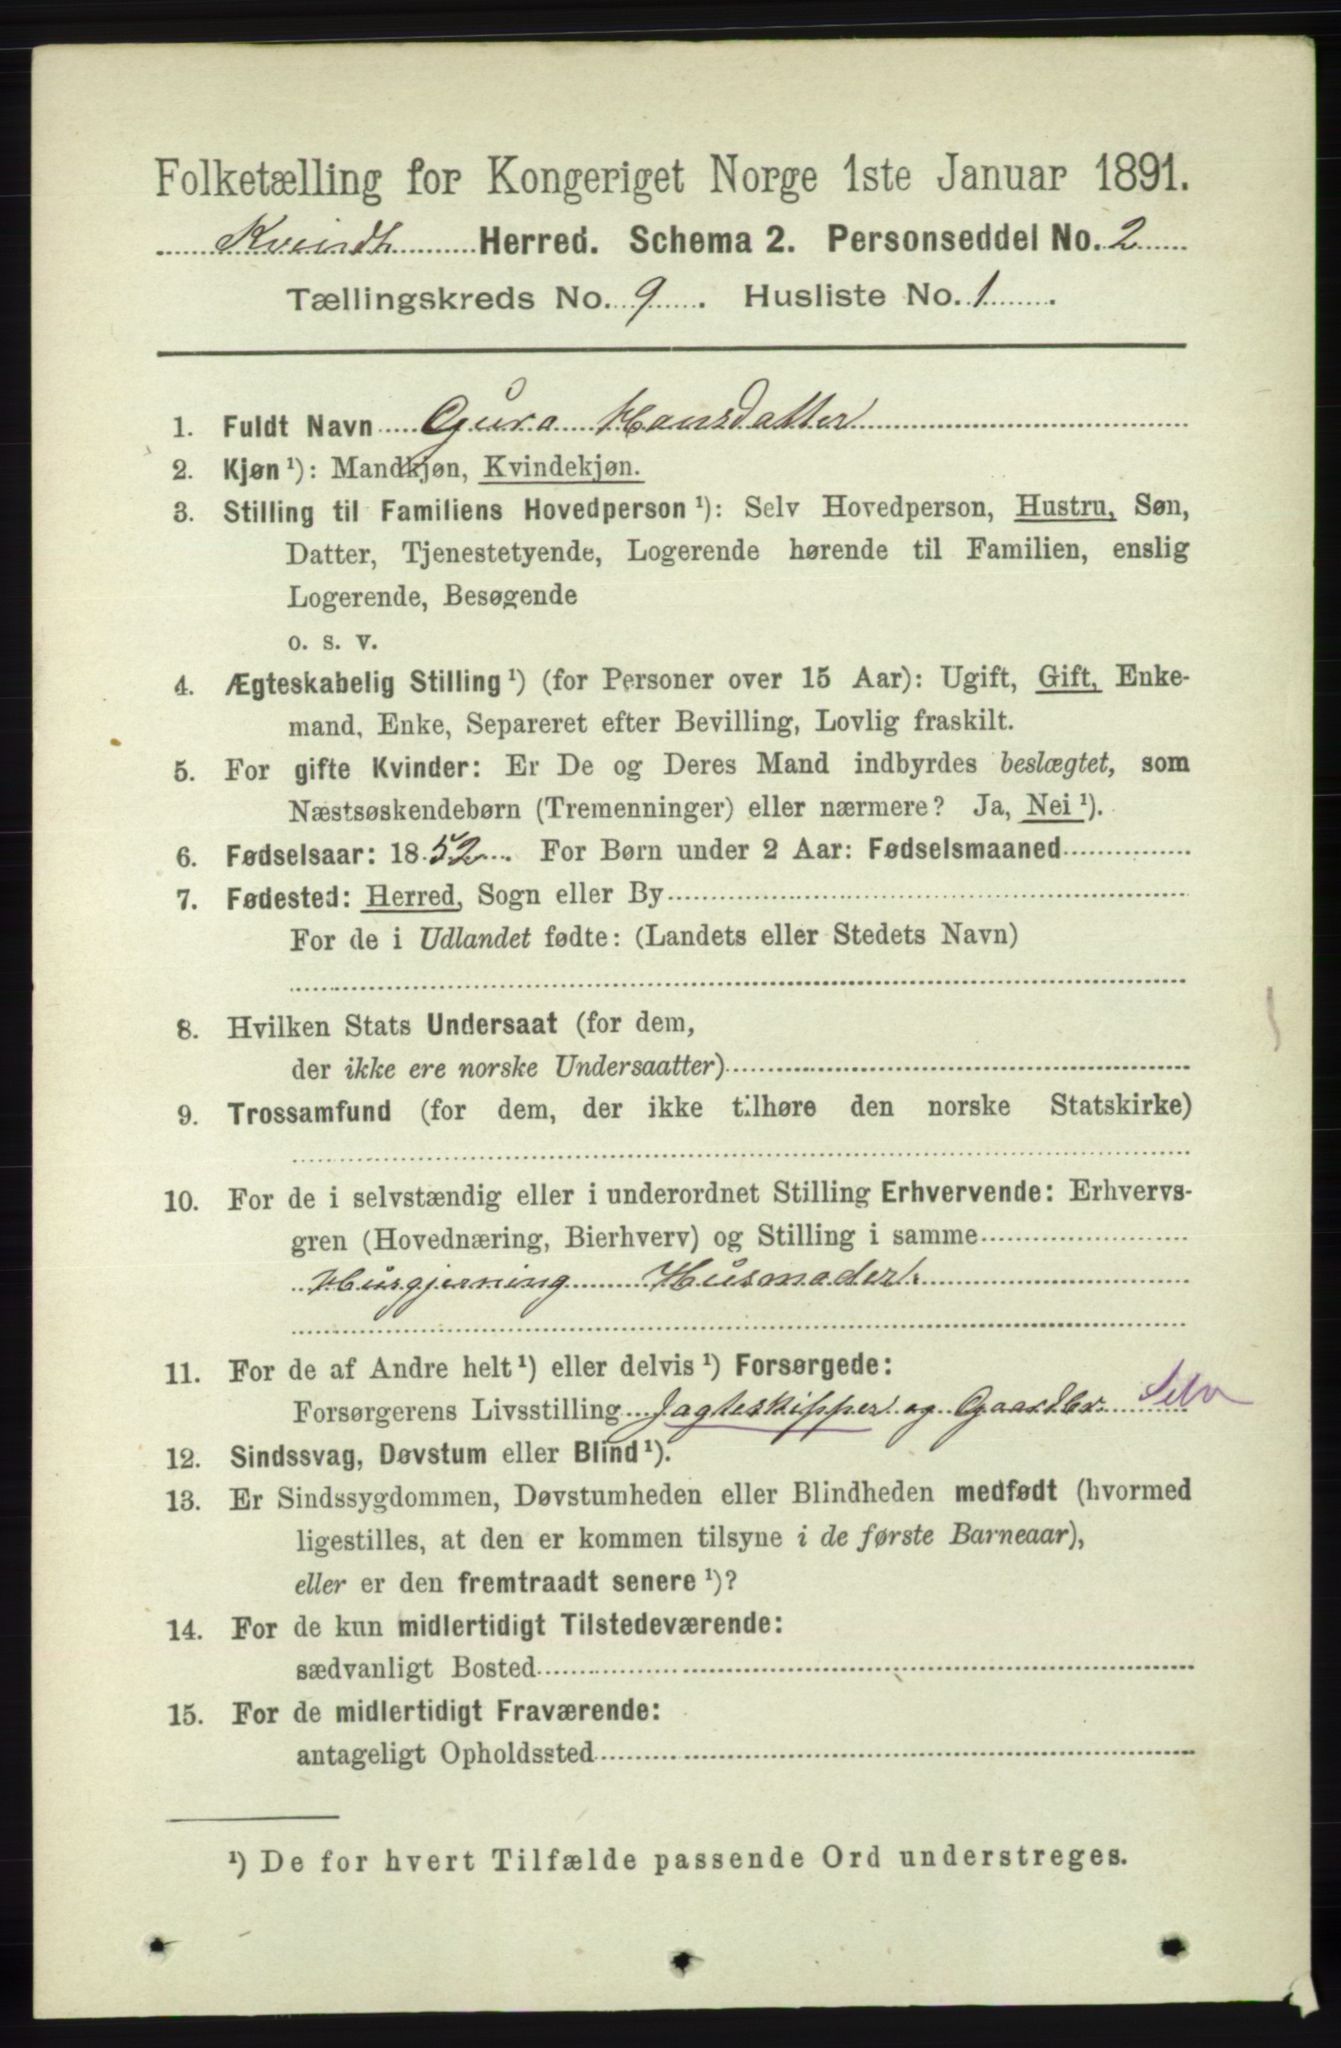 Folketælling for Kongeriget Norge 1ste Januar 1891.
Kvindh Herred. Schema 2. Personseddel No. 2
Tællingskreds No. 9. Husliste No. 1.
1. Fuldt Navn Guro Hansdatter
2. Kjøn ¹): Mandkjøn, Kvindekjøn.
3. Stilling til Familiens Hovedperson ¹): Selv Hovedperson, Hustru, Søn,
Datter, Tjenestetyende, Logerende hørende til Familien, enslig
Logerende, Besøgende
o. s. v.
4. Ægteskabelig Stilling ¹) (for Personer over 15 Aar): Ugift, Gift, Enke-
mand, Enke, Separeret efter Bevilling, Lovlig fraskilt.
5. For gifte Kvinder: Er De og Deres Mand indbyrdes beslægtet, som
Næstsøskendebørn (Tremenninger) eller nærmere? Ja, Nei ¹).
6. Fødselsaar: 1852. For Børn under 2 Aar: Fødselsmaaned
7. Fødested: Herred, Sogn eller By
For de i Udlandet fødte: (Landets eller Stedets Navn)
8. Hvilken Stats Undersaat (for dem,
der ikke ere norske Undersaatter)
9. Trossamfund (for dem, der ikke tilhøre den norske Statskirke)
10. For de i selvstændig eller i underordnet Stilling Erhvervende: Erhvervs-
gren (Hovednæring, Bierhverv) og Stilling i samme
Husgjerning Husmoder.
11. For de af Andre helt ¹) eller delvis ¹) Forsørgede:
Forsørgerens Livsstilling Jagteskipper og Gaardbr. Selv
12. Sindssvag, Døvstum eller Blind ¹).
13. Er Sindssygdommen, Døvstumheden eller Blindheden medfødt (hvormed
ligestilles, at den er kommen tilsyne i de første Barneaar),
eller er den fremtraadt senere ¹)?
14. For de kun midlertidigt Tilstedeværende:
sædvanligt Bosted
15. For de midlertidigt Fraværende:
antageligt Opholdssted
¹) De for hvert Tilfælde passende Ord understreges.